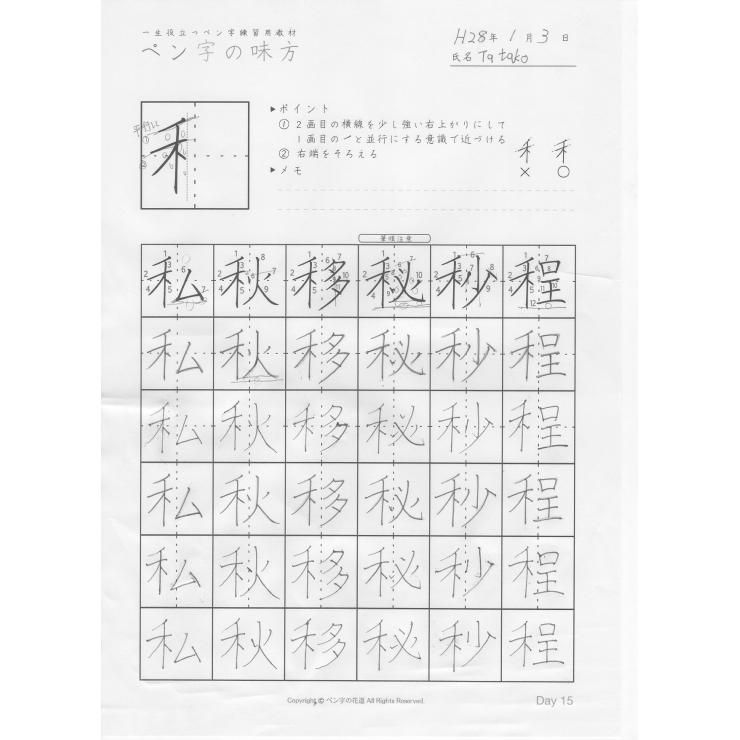 一生役立つペン字練習用教材
ペン字の味方
H28年 1月 3日
氏名 Ta tako
平行に
①
禾
▶ポイント
① 2画目の横線を少し強い右上がりにして
1画目の㇒と並行にする意識で近づける
② 右端をそろえる
▶メモ
禾 禾
× ○
筆順注意
私 秋 移 秘 秒 程
私 秋 移 秘 秒 程
私 秋 移 秘 秒 程
私 秋 移 秘 秒 程
私 秋 移 秘 秒 程
私 秋 移 秘 秒 程
Copyright © ペン字の花道 All Rights Reserved.
Day 15